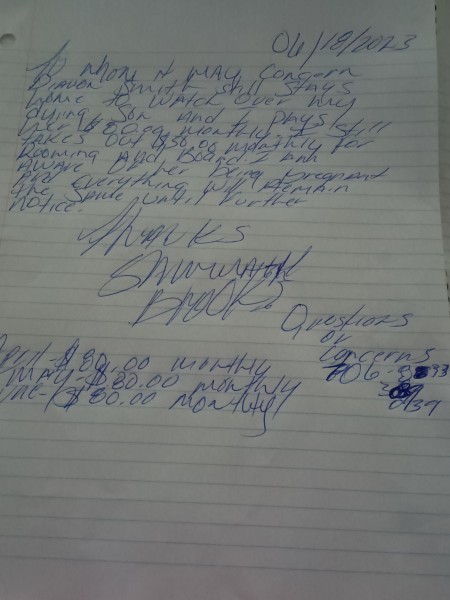 06/18/2023
To whom it may concern
Smith still stays
home to watch over my
dying son and I pays
her $80.00 monthly. I still
takes out $50.00 monthly for
Rooming And Board. I am
aware of her being pregnant
and everything will remain
the same until further
notice.
Thanks
Brooks
Questions
or
Concerns
706-
$80.00 monthly
May-$80.00 monthly
$80.00 monthly